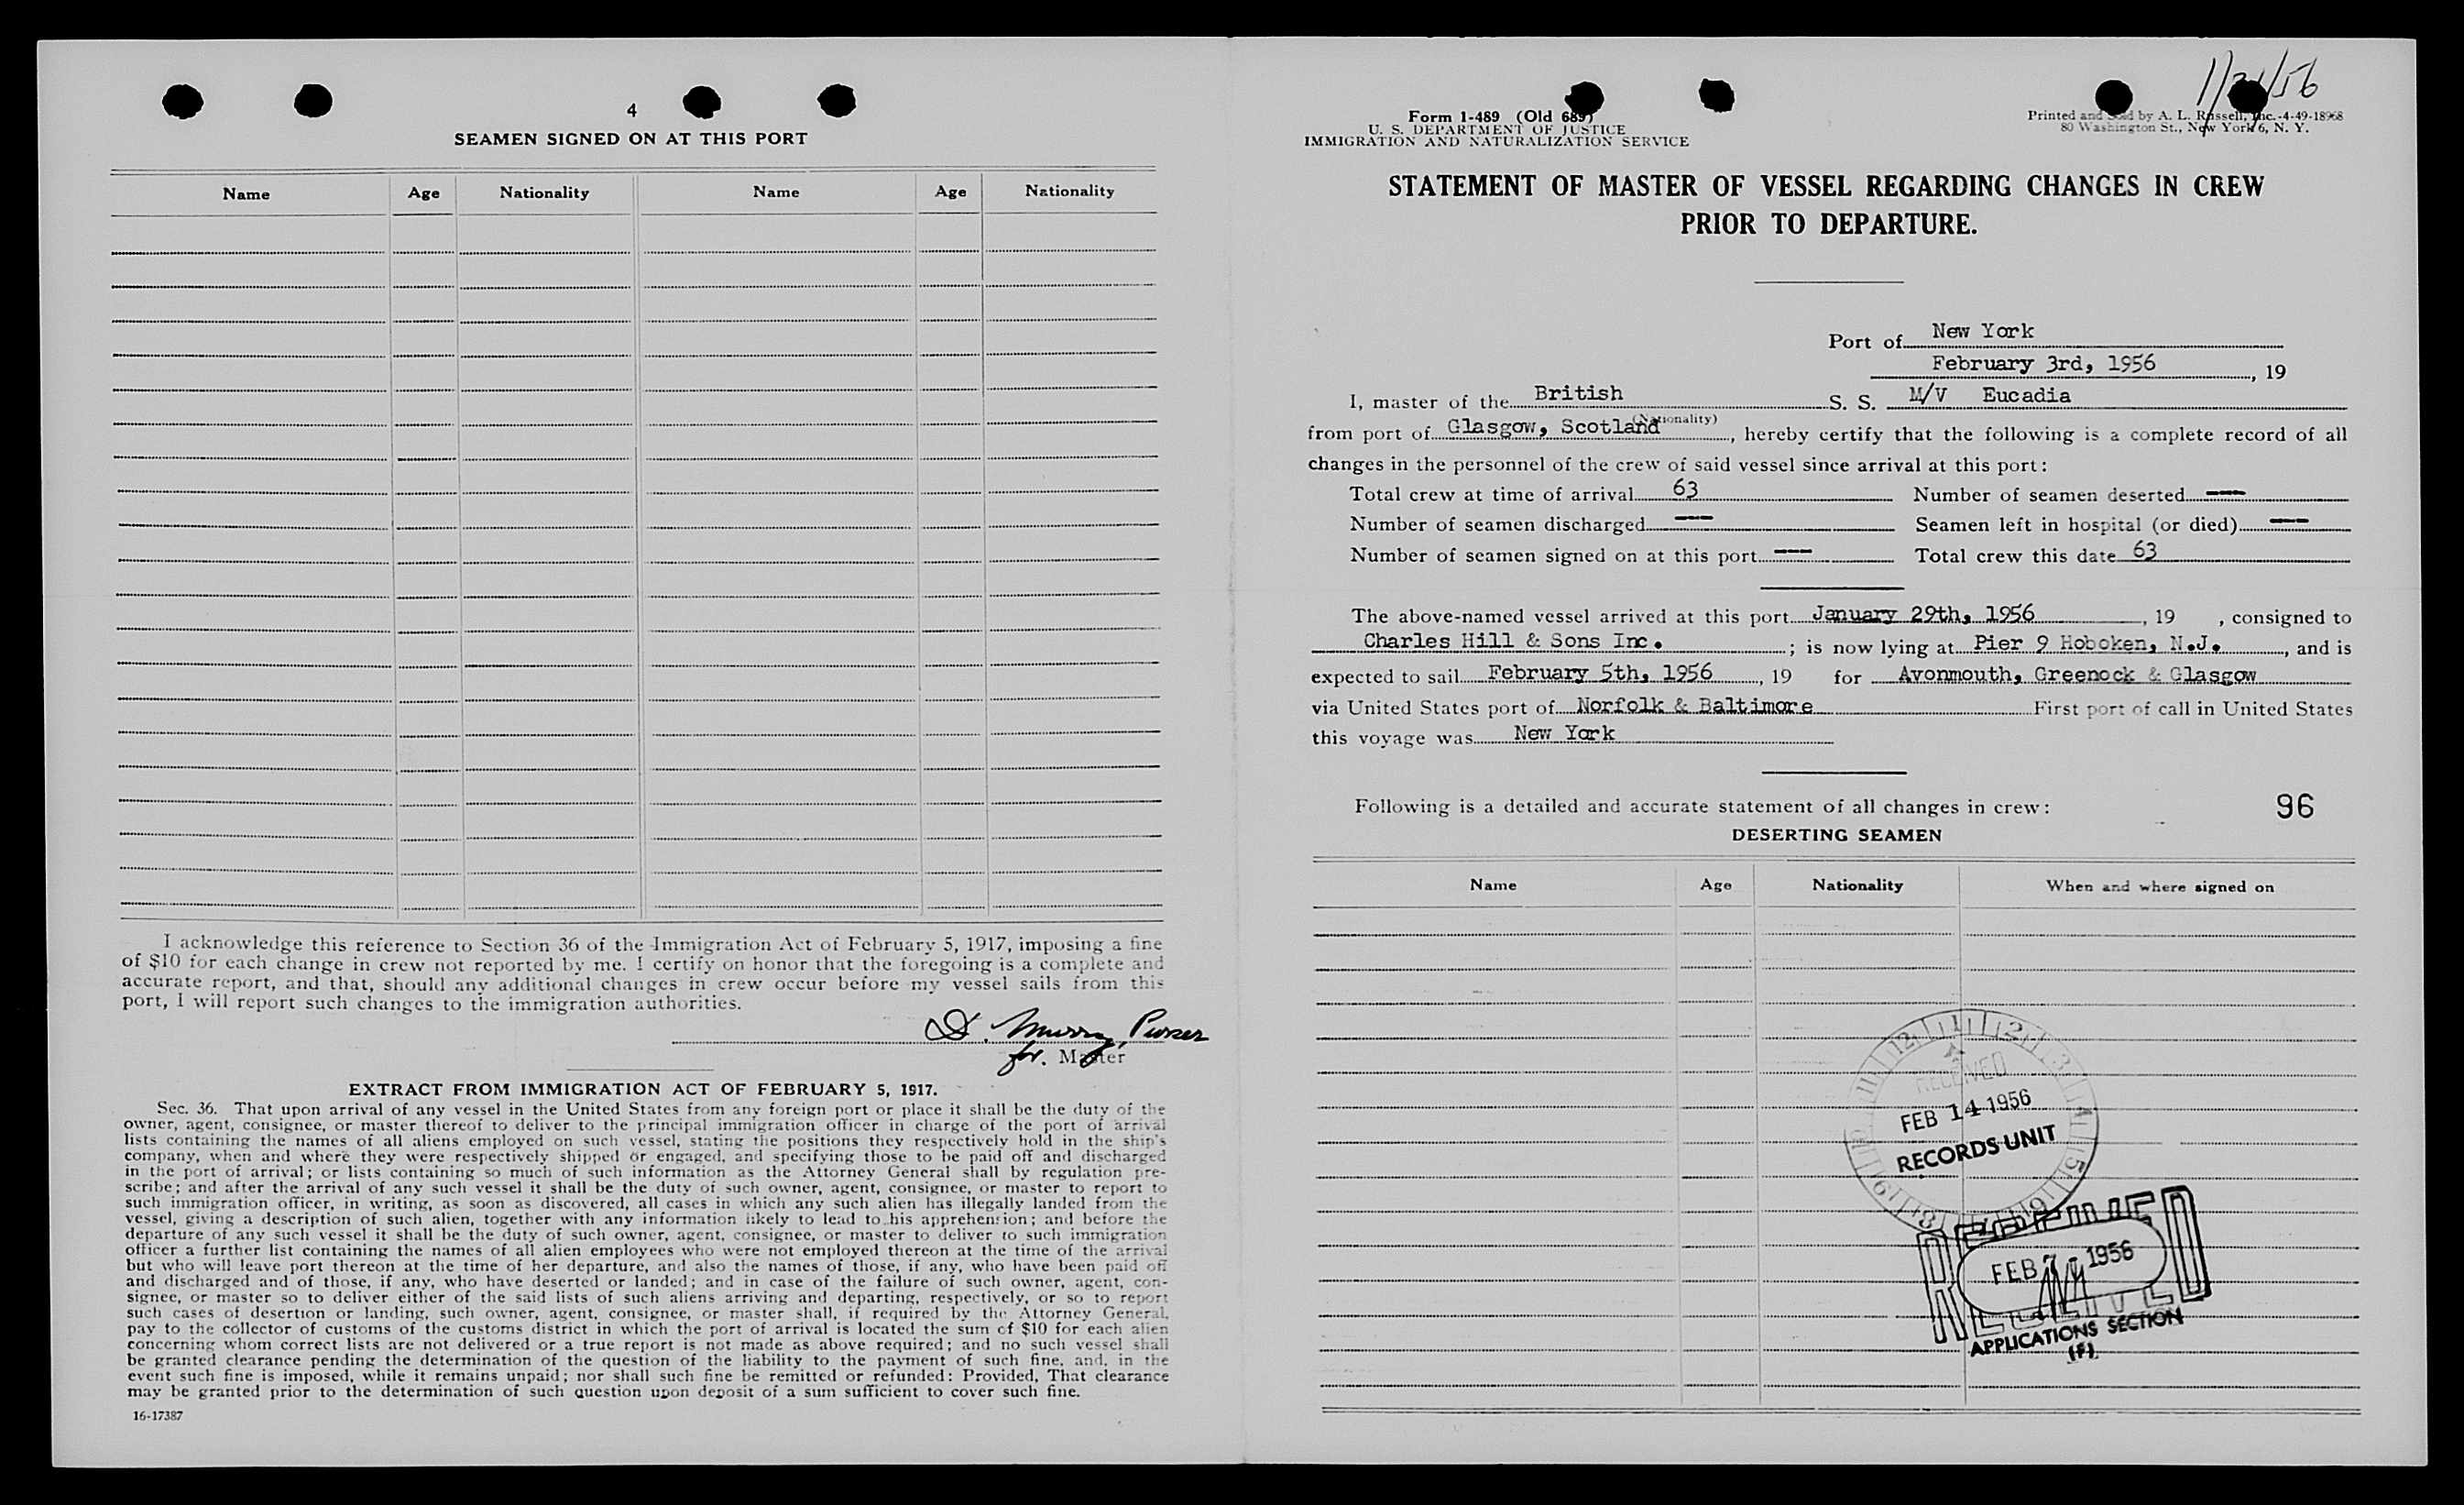 4
SEAMEN SIGNED ON AT THIS PORT
Name Age Nationality Name Age Nationality
I acknowledge this reference to Section 36 of the Immigration Act of February 5, 1917, imposing a fine
of $10 for each change in crew not reported by me. I certify on honor that the foregoing is a complete and
accurate report, and that, should any additional changes in crew occur before my vessel sails from this
port, I will report such changes to the immigration authorities.
D. Murray, Purser
for. Master
EXTRACT FROM IMMIGRATION ACT OF FEBRUARY 5, 1917.
Sec. 36. That upon arrival of any vessel in the United States from any foreign port or place it shall be the duty of the
owner, agent, consignee, or master thereof to deliver to the principal immigration officer in charge of the port of arrival
lists containing the names of all aliens employed on such vessel, stating the positions they respectively hold in the ship's
company, when and where they were respectively shipped or engaged, and specifying those to be paid off and discharged
in the port of arrival; or lists containing so much of such information as the Attorney General shall by regulation pre-
scribe; and after the arrival of any such vessel it shall be the duty of such owner, agent, consignee, or master to report to
such immigration officer, in writing, as soon as discovered, all cases in which any such alien has illegally landed from the
vessel, giving a description of such alien, together with any information likely to lead to his apprehension; and before the
departure of any such vessel it shall be the duty of such owner, agent, consignee, or master to deliver to such immigration
officer a further list containing the names of all alien employees who were not employed thereon at the time of the arrival
but who will leave port thereon at the time of her departure, and also the names of those, if any, who have been paid off
and discharged and of those, if any, who have deserted or landed; and in case of the failure of such owner, agent, con-
signee, or master so to deliver either of the said lists of such aliens arriving and departing, respectively, or so to report
such cases of desertion or landing, such owner, agent, consignee, or master shall, if required by the Attorney General,
pay to the collector of customs of the customs district in which the port of arrival is located the sum of $10 for each alien
concerning whom correct lists are not delivered or a true report is not made as above required; and no such vessel shall
be granted clearance pending the determination of the question of the liability to the payment of such fine, and, in the
event such fine is imposed, while it remains unpaid; nor shall such fine be remitted or refunded: Provided, That clearance
may be granted prior to the determination of such question upon deposit of a sum sufficient to cover such fine.
16-17387
1/31/56
Form I-489 (Old 689)
U. S. DEPARTMENT OF JUSTICE
IMMIGRATION AND NATURALIZATION SERVICE
Printed and Sold by A. L. Russell, Inc.-4-49-18968
80 Washington St., New York 6, N. Y.
STATEMENT OF MASTER OF VESSEL REGARDING CHANGES IN CREW
PRIOR TO DEPARTURE.
Port of New York
February 3rd, 1956, 19
I, master of the British S. S. M/V Eucadia
(Nationality)
from port of Glasgow, Scotland, hereby certify that the following is a complete record of all
changes in the personnel of the crew of said vessel since arrival at this port:
Total crew at time of arrival 63 Number of seamen deserted ---
Number of seamen discharged --- Seamen left in hospital (or died) ---
Number of seamen signed on at this port --- Total crew this date 63
The above-named vessel arrived at this port January 29th, 1956, 19 , consigned to
Charles Hill & Sons Inc. ; is now lying at Pier 9 Hoboken, N.J., and is
expected to sail February 5th, 1956, 19 for Avonmouth, Greenock & Glasgow
via United States port of Norfolk & Baltimore First port of call in United States
this voyage was New York
Following is a detailed and accurate statement of all changes in crew: 96
DESERTING SEAMEN
Name Age Nationality When and where signed on
RECEIVED
FEB 14 1956
RECORDS UNIT
RECEIVED
FEB 7 - 1956
RECEIVED
APPLICATIONS SECTION
(F)